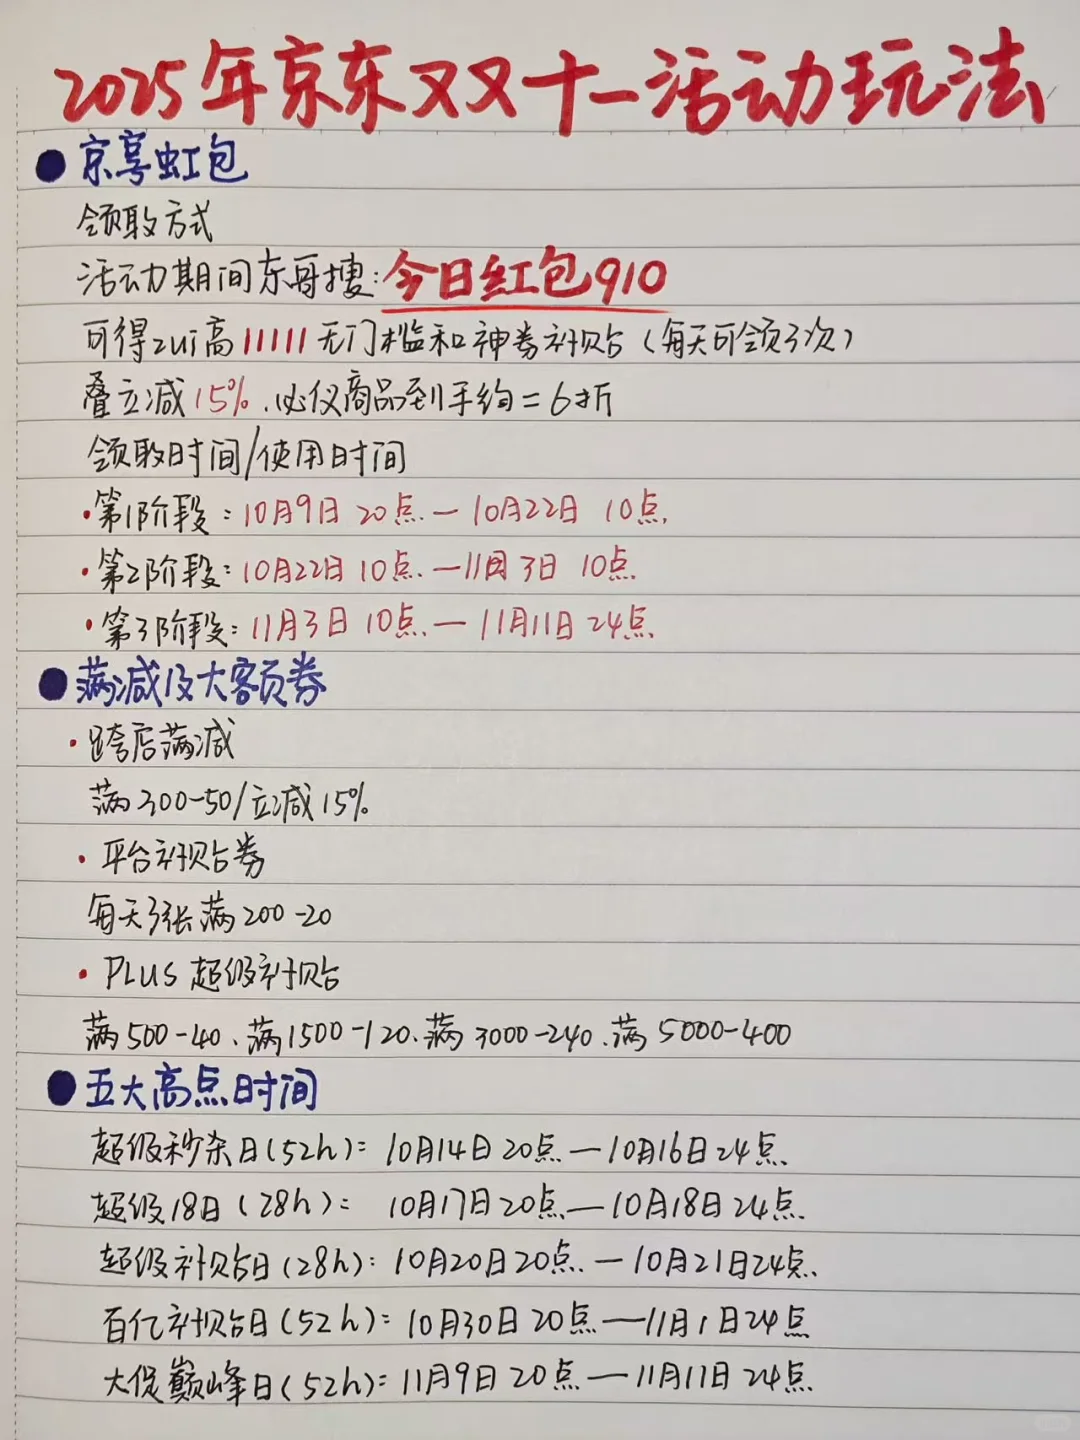 2025年京东双双十一活动玩法
京享虹包
领取方式
活动期间东哥搜:今日红包910
可得zui高11111无门槛和神券补贴(每天可领3次)
叠立减15%.必仪商品到手约=6折
领取时间/使用时间
·第1阶段:10月9日 20点—10月22日 10点
·第2阶段:10月22日10点—11月3日 10点
·第3阶段:11月3日 10点—11月11日 24点
满减及大客页券
·跨店满减
满300-50/立减15%
·平台补贴券
每天3张满200-20
·PLUS超级补贴
满500-40、满1500-120、满3000-240、满5000-400
五大高点时间
超级秒杀日(52h):10月14日20点—10月16日24点
超级18日(28h): 10月17日20点—10月18日24点
超级补贴日(28h):10月20日20点—10月21日24点
百亿补贴日(52h):10月30日20点—11月1日24点
大促巅峰日(52h):11月9日20点—11月11日24点